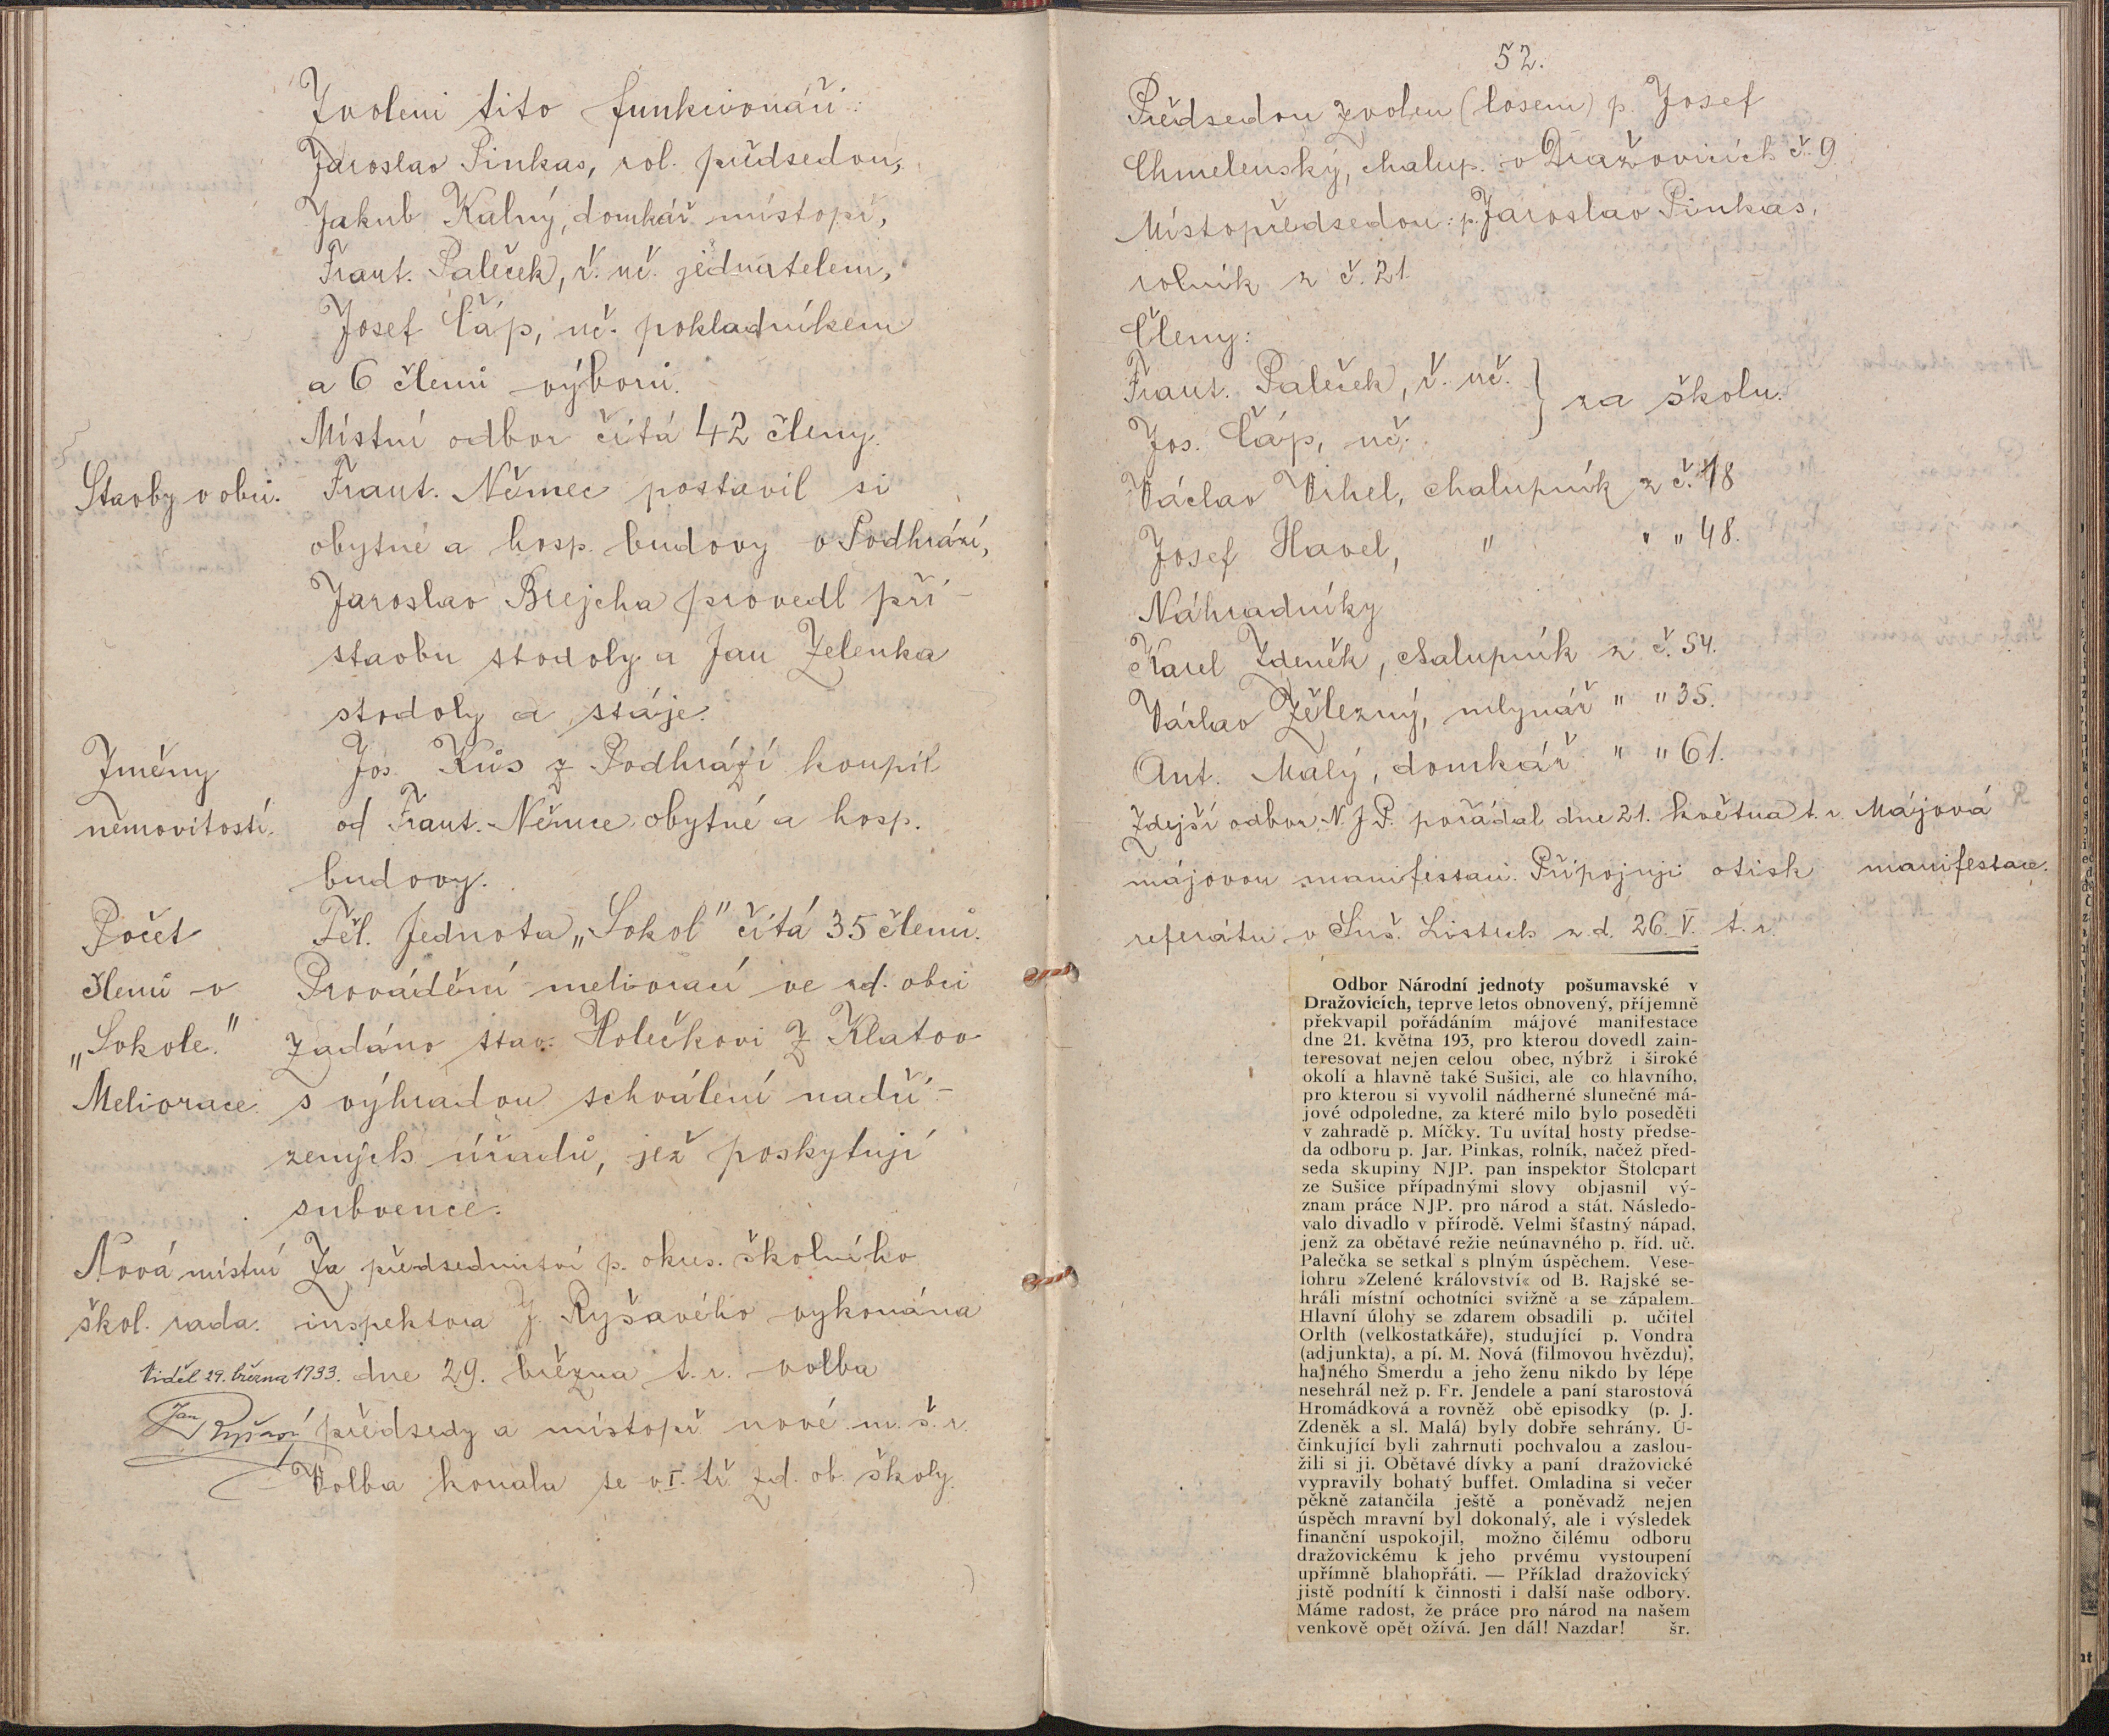 Zvoleni tito funkcionáři:
Jaroslav Pinkas, rol. předsedou,
Jakub Kalný, domkář místopř,
Frant. Paleček, ř. uč. jednatelem,
Josef Čáp, uč. pokladníkem
a 6 členů výboru.
Místní odbor čítá 42 členy.
Stavby v obci.
Frant. Němec postavil si
obytné a hosp. budovy v Podhrází,
Jaroslav Brejcha provedl pří-
stavbu stodoly a Jan Zelenka
stodoly a stáje.
Změny
nemovitostí.
Jos. Kůs z Podhrází koupil
od Frant. Němce obytné a hosp.
budovy.
Počet
členů v
„Sokole."
Těl. Jednota „Sokol" čítá 35 členů.
Meliorace.
Provádění meliorací ve zd. obci
zadáno stav. Holečkovi z Klatov
s výhradou schválení nadří-
zených úřadů, jež poskytují
subvence.
Nová místní
škol. rada.
Za předsednictví p. okres. školního
inspektora J. Ryšavého vykonána
dne 29. března t. r. volba
předsedy a místopř nové m. š. r
Volba konala se v I. tř zd. ob. školy.
Viděl 29. března 1933.
Jan Ryšavý
52.
Předsedou zvolen (losem) p. Josef
Chmelenský, chalup. v Dražovicích č. 9
Místopředsedou: p. Jaroslav Pinkas,
rolník z č. 21.
Členy:
Frant. Paleček, ř. uč. } za školu.
Jos. Čáp, uč.
Václav Vihel, chalupník z č. 18
Josef Havel, " " " 48.
Náhradníky
Karel Zdeněk, chalupník z č. 54.
Václav Železný, mlynář " " 35.
Ant. Malý, domkář " " 61.
Zdejší odbor N. J. P. pořádal dne 21. května t. r.
májovou manifestaci. Připojuji otisk
referátu v Suš. Listech z d. 26. V. t. r.
Májová
manifestace.
Odbor Národní jednoty pošumavské v
Dražovicích, teprve letos obnovený, příjemně
překvapil pořádáním májové manifestace
dne 21. května 193, pro kterou dovedl zain-
teresovat nejen celou obec, nýbrž i široké
okolí a hlavně také Sušici, ale co hlavního,
pro kterou si vyvolil nádherné slunečné má-
jové odpoledne, za které milo bylo poseděti
v zahradě p. Míčky. Tu uvítal hosty předse-
da odboru p. Jar. Pinkas, rolník, načež před-
seda skupiny NJP. pan inspektor Štolcpart
ze Sušice případnými slovy objasnil vý-
znam práce NJP. pro národ a stát. Následo-
valo divadlo v přírodě. Velmi šťastný nápad,
jenž za obětavé režie neúnavného p. říd. uč.
Palečka se setkal s plným úspěchem. Vese-
lohru »Zelené království« od B. Rajské se-
hráli místní ochotníci svižně a se zápalem.
Hlavní úlohy se zdarem obsadili p. učitel
Orlth (velkostatkáře), studující p. Vondra
(adjunkta), a pí. M. Nová (filmovou hvězdu),
hajného Šmerdu a jeho ženu nikdo by lépe
nesehrál než p. Fr. Jendele a paní starostová
Hromádková a rovněž obě episodky (p. J.
Zdeněk a sl. Malá) byly dobře sehrány. U-
činkující byli zahrnuti pochvalou a zaslou-
žili si ji. Obětavé dívky a paní dražovické
vypravily bohatý buffet. Omladina si večer
pěkně zatančila ještě a poněvadž nejen
úspěch mravní byl dokonalý, ale i výsledek
finanční uspokojil, možno čilému odboru
dražovickému k jeho prvému vystoupení
upřímně blahopřáti. — Příklad dražovický
jistě podnítí k činnosti i další naše odbory.
Máme radost, že práce pro národ na našem
venkově opět ožívá. Jen dál! Nazdar! šr.